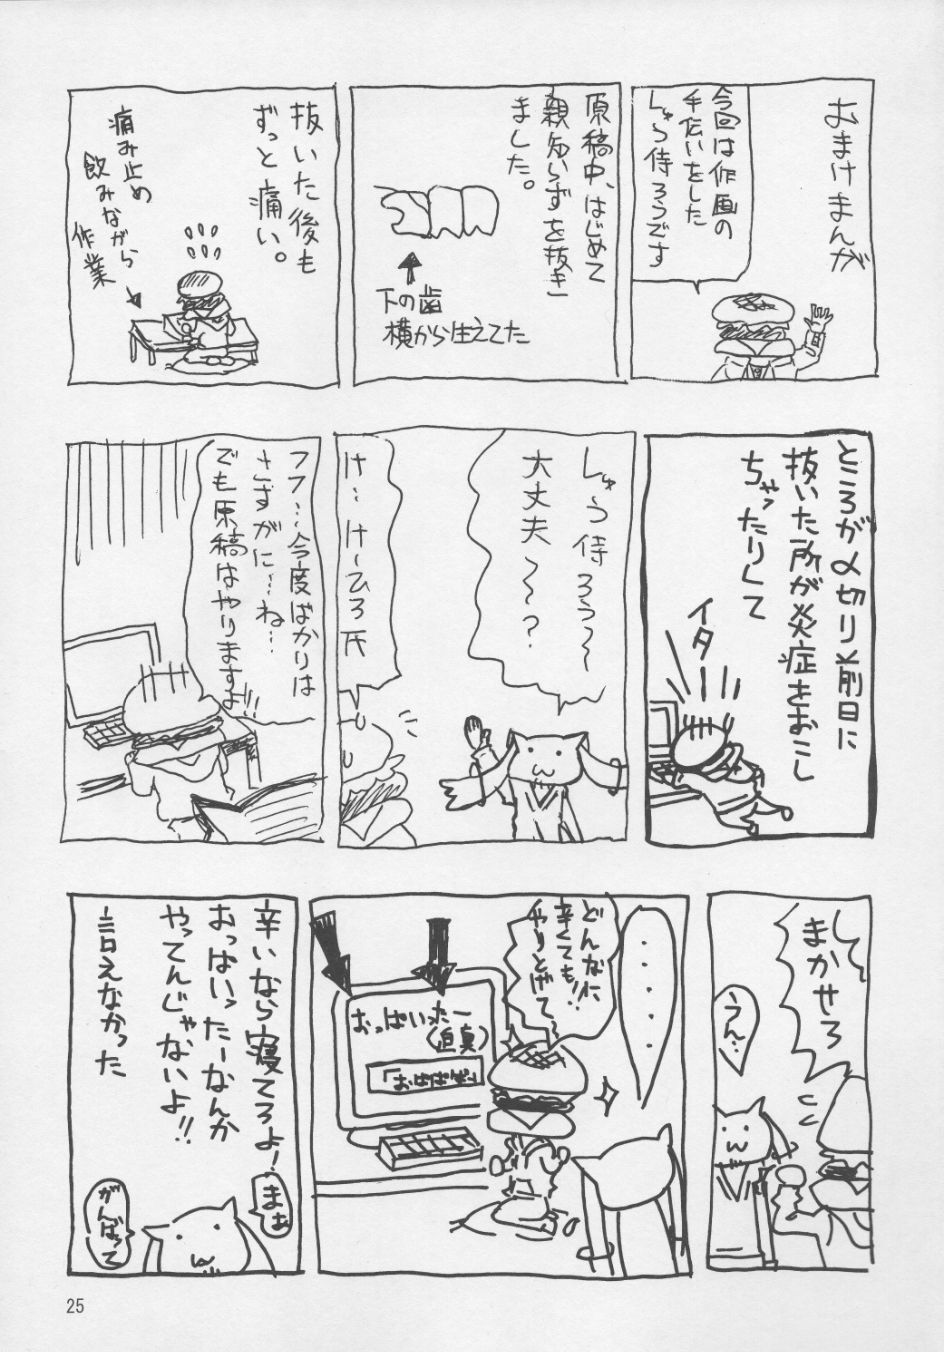 おまけまんが
今回は作画の
手伝いをした
しゅう侍ろうです
原稿中、はじめて
親知らずを抜き
ました。
下の歯
横から生えてた
抜いた後も
ずっと痛い。
痛み止め
飲みながら
作業
ところが〆切り前日に
抜いた所が炎症をおこし
ちゃったりして
イターー
しゅう侍ろう〜
大丈夫〜〜?
け…けーひろ氏
フフ…今度ばかりは
さすがに…ね…
でも原稿はやりますよ!!
まかせろ
うん…
・・・・・
どんなに
辛くても!!
やりとげて
おっぱいったー
(迫真)
辛いなら寝てろよ!
おっぱいったーなんか
やってんじゃないよ!!
言えなかった
まぁ
がんばって
25